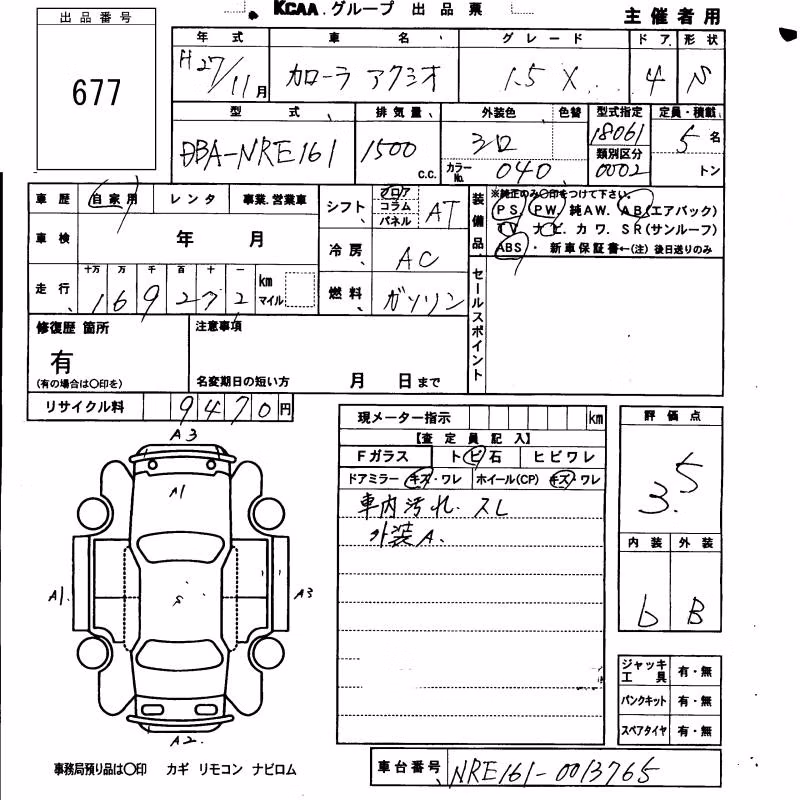 KCAA.グループ 出品票
主催者用
出品番号
677
年式 車名 グレード ドア 形状
H27/11月 カローラ アクシオ 1.5 X 4 N
型式 排気量 外装色 色替 型式指定 定員・積載
DBA-NRE161 1500 c.c. シロ 18061 5名
カラーNo. 040 類別区分 0002 トン
車歴 自家用 レンタ 事業.営業車
シフト フロア コラム パネル AT
車検 年 月
冷房 AC
走行 十万 万 千 百 十 一
169272 km マイル
燃料 ガソリン
装備品
※純正のみ○印をつけて下さい。
PS. PW. 純AW. AB(エアバック)
TV ナビ. カワ. SR(サンルーフ)
ABS・ 新車保証書←(注) 後日送りのみ
セールスポイント
修復歴 箇所
有
(有の場合は○印を)
注意事項
名変期日の短い方 月 日まで
リサイクル料 9470円
現メーター指示 km
【査定員記入】
Fガラス トビ石 ヒビワレ
ドアミラー キズ・ワレ ホイール(CP) キズ・ワレ
車内汚れ. スレ
外装A.
評価点
3.5
内装 外装
b B
A3
A1
A1
S
A3
A2.
ジャッキ工具 有・無
パンクキット 有・無
スペアタイヤ 有・無
事務局預り品は○印 カギ リモコン ナビロム
車台番号 NRE161-0013765